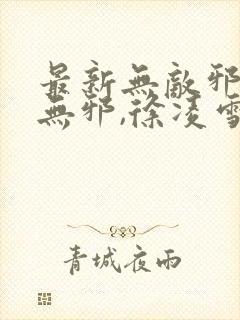 最新無敵邪
無邪,徐凌雪
青城夜雨